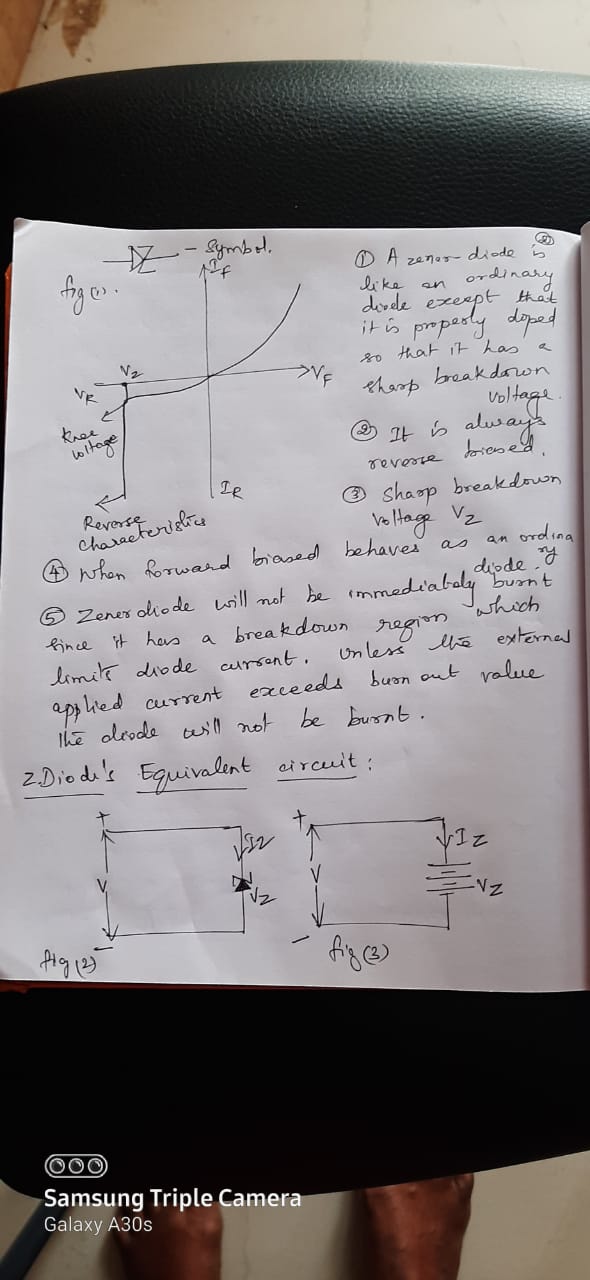 ②
– Symbol.
fig (1).
I_F
V_F
V_Z
V_R
Knee
voltage
I_R
Reverse
characteristics
① A zener diode is
like an ordinary
diode except that
it is properly doped
so that it has a
sharp breakdown
voltage.
② It is always
reverse biased.
③ Sharp breakdown
voltage V_Z
④ When forward biased behaves as an ordinary
diode.
⑤ Zener diode will not be immediately burnt
since it has a breakdown region which
limits diode current. Unless the external
applied current exceeds burn out value
the diode will not be burnt.
Z.Diode's Equivalent circuit :
+
V
–
I_Z
V_Z
fig (2)
+
V
–
I_Z
V_Z
fig (3)
Samsung Triple Camera
Galaxy A30s